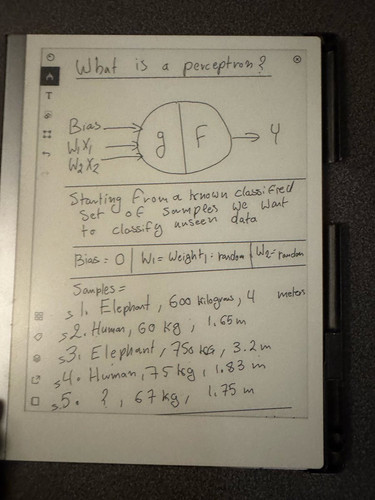 What is a perceptron?
Bias
W1X1
W2X2
g F
Y
Starting from a known classified
set of samples we want
to classify unseen data
Bias = 0 | W1 = Weight1 = random | W2 = random
Samples =
s1. Elephant, 600 kilograms, 4 meters
s2. Human, 60 kg, 1.65m
s3. Elephant, 750 kgs, 3.2 m
s4. Human, 75 kg, 1.83 m
s5. ?, 67 kg, 1.75 m